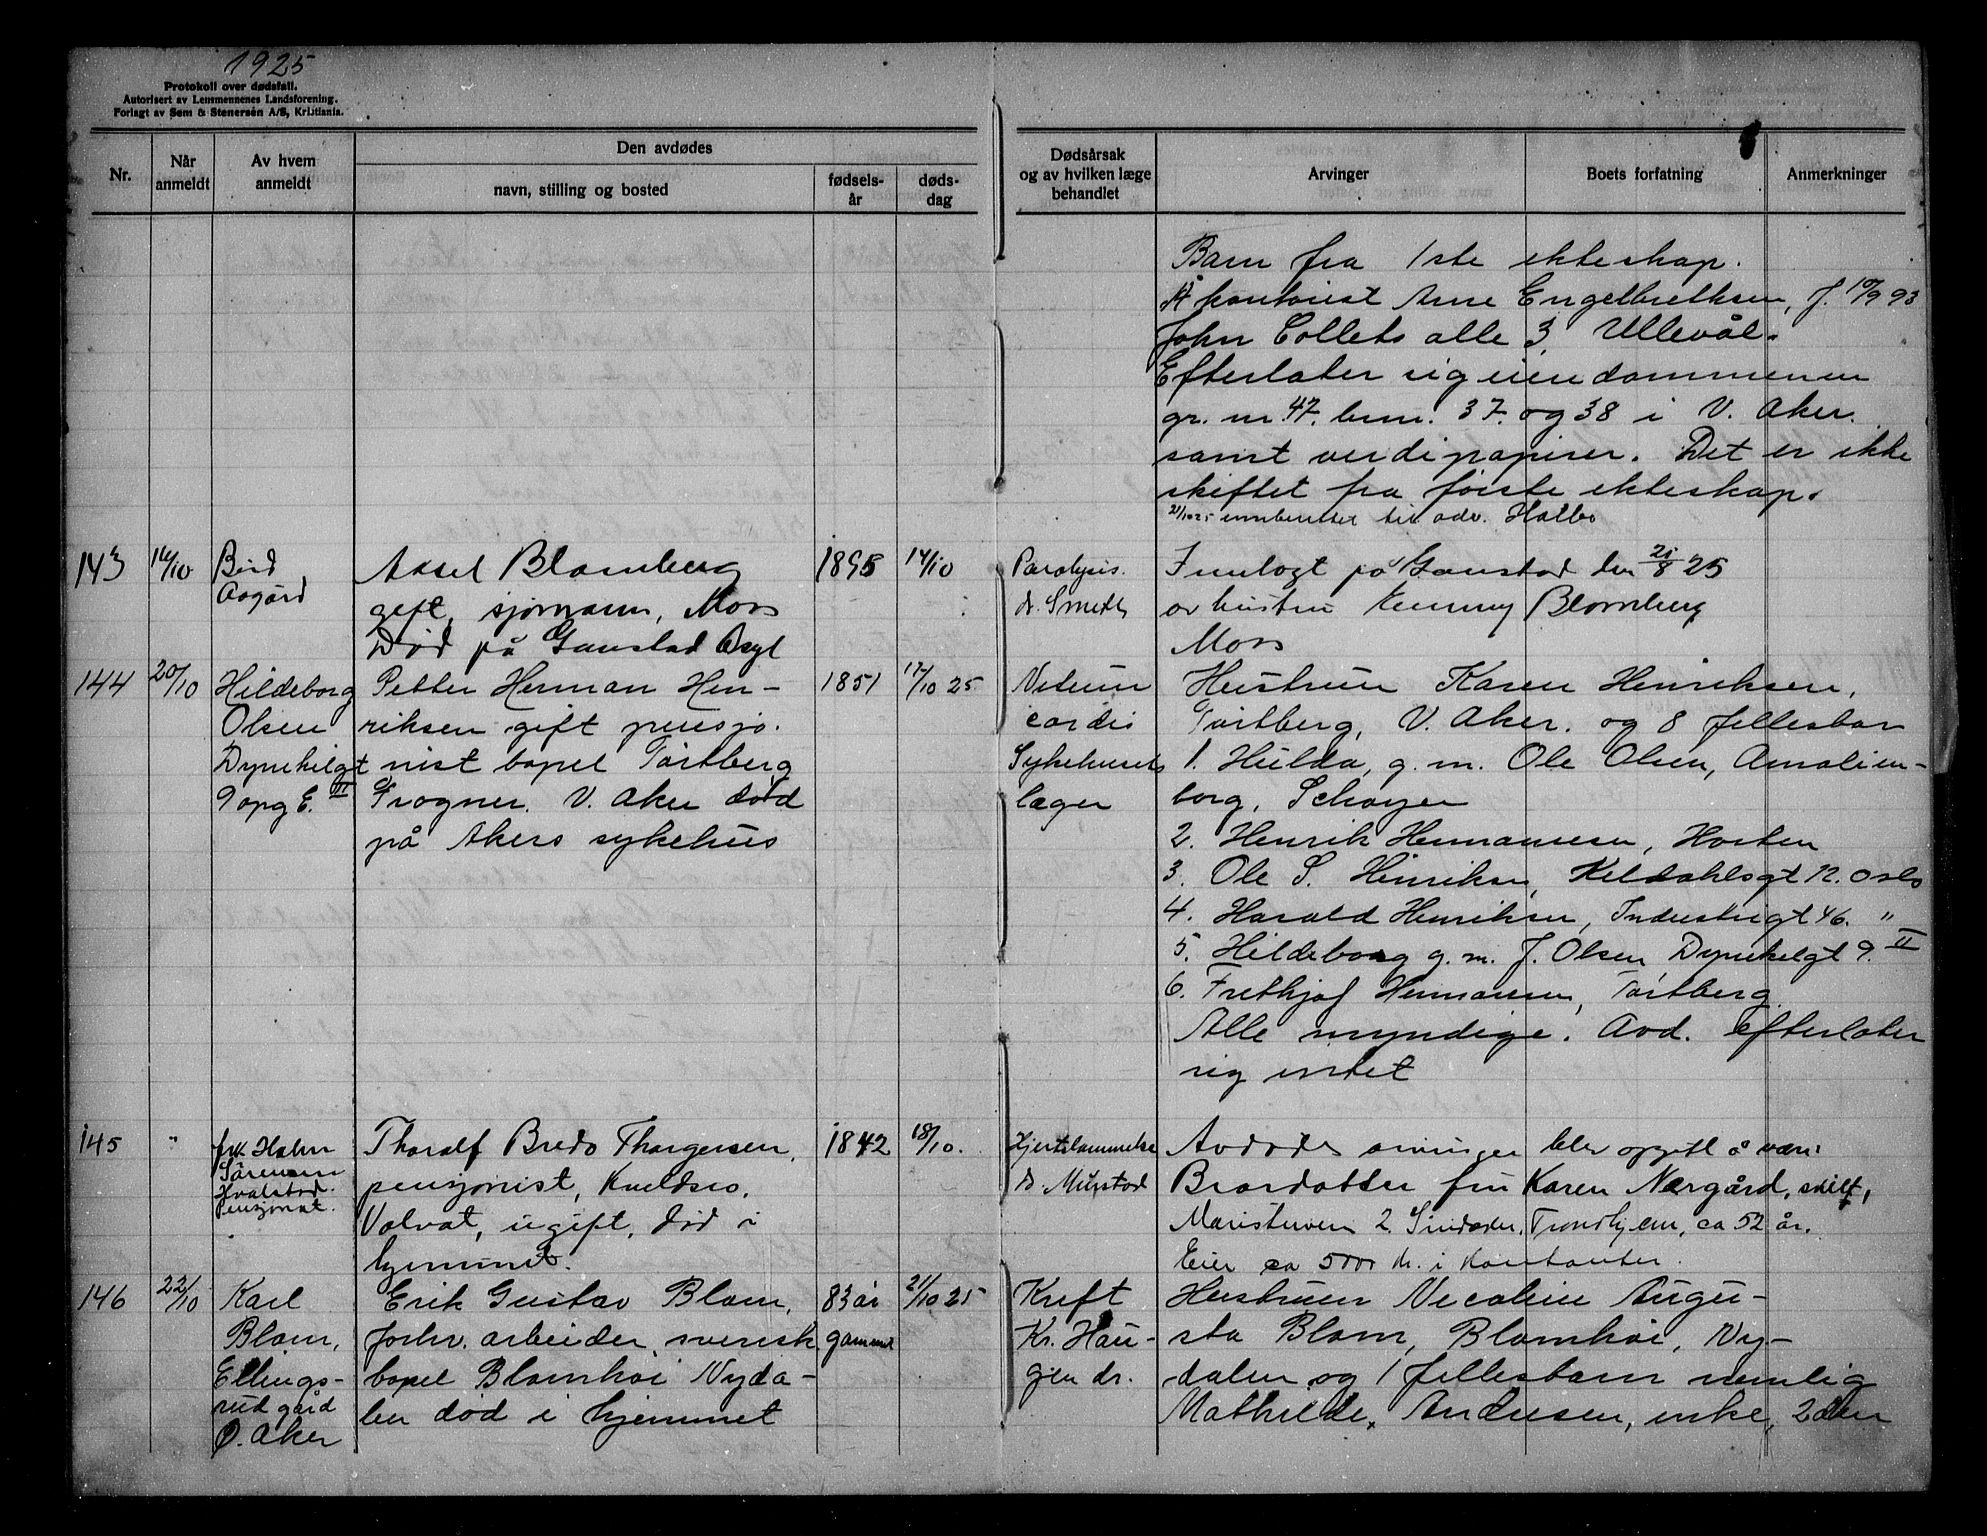 1925
Protokoll over dødsfall.
Autorisert av Lensmennenes Landsforening.
Forlagt av Sem & Stenersen A/S, Kristiania.
Nr.
Når anmeldt
Av hvem anmeldt
Den avdødes
navn, stilling og bosted
fødsels-år
døds-dag
Dødsårsak og av hvilken læge behandlet
Arvinger
Boets forfatning
Anmerkninger
Barn fra 1ste ekteskap.
kontorist Arne Engelbrethsen, f. 10/9 93
John Collets alle 3, Ullevål.
Efterlater sig eiendommenen
gr. nr. 47. brnr. 37. og 38 i V. Aker.
samt verdipapirer. Det er ikke
skiftet fra første ekteskap.
21/10 25 innberettet til adv. Holbo
143 16/10
Aasgård
Axsel Blomberg
gift, sjømann, Moss
Død på Gaustad Asyl
1895
14/10
Paralysis.
dr. Smeth
Innlagt på Gaustad den 21/8 25
av hustru Blomberg
Moss
144 20/10
Hildeborg
Olsen
Dynekilgt
9 opg E. II
Petter Herman Hen-
riksen gift pensjo-
nist bopel Tørtberg
Frogner. V. Aker død
på Akers sykehus
1851
17/10 25
Vitium
cordis
Sykehusets
læger
Hustruen Karen Henriksen,
Tørtberg, V. Aker. og 8 fellesbar
1. Hulda, g. m. Ole Olsen, Amalien-
borg,
2. Henrik Hermansen, Horten
3. Ole S. Henriksen, Keldahlsgt 12. Oslo
4. Harald Henriksen, Industrigt 46. "
5. Hildeborg g. m. J. Olsen Dynekilgt 9. II
6. Frethjof Hermansen, Tørtberg
Alle myndige. Avd. efterlater
sig intet
145 "
frk. Hahn
Sørensen
Hvalstad
Pensjonat.
Tharalf Bredo Thorgersen,
pensjonist,
Volvat, ugift, død i
hjemmet.
1842
18/10.
Hjertelammelse
dr. Mustad
Avdødes arvinger blev opgitt å være:
Brordatter fru Karen Nergård, skilt,
Trondhjem, ca 52 år.
Eier ca 5000 kr. i kontanter.
146 22/10
Karl
Blom,
Ellings-
rud gård
Ø. Aker
Erik Gustav Blom,
forhv. arbeider, svensk
bopel Blomhøi Nyda-
len død i hjemmet
83 år
gammel
21/10 25
Kreft
Kr. Hau-
gen dr.
Hustruen Nicoline Augu-
sta Blom, Blomhøi, Ny-
dalen og 1 fellesbarn nemlig
Mathilde, Andresen, enke,